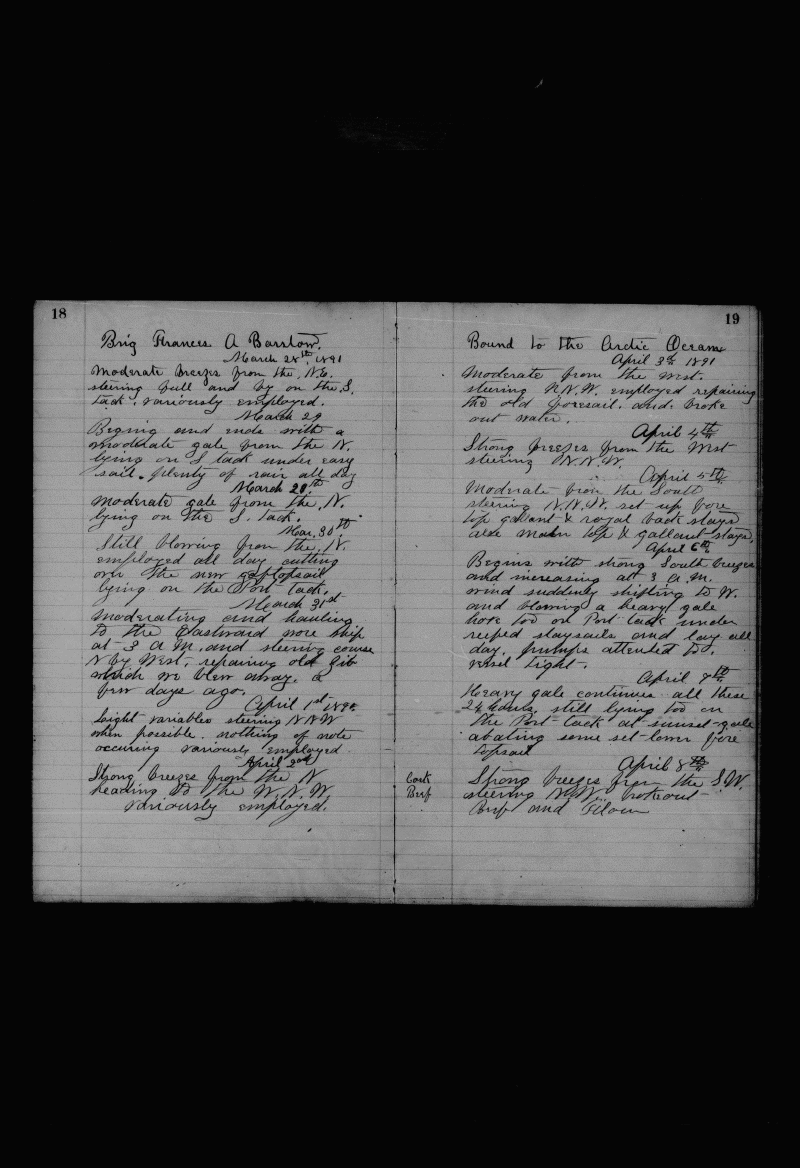 18
Brig Frances A Barstow.
March 28th 1891
Moderate breezes from the N.E.
steering full and by on the S.
tack. variously employed.
March 29
Begins and ends with a
moderate gale from the N.
lying on S tack under easy
sail. plenty of rain all day
March 20th
Moderate gale from the N.
lying on the S. tack.
Mar. 30th
Still blowing from the N.
employed all day cutting
over the new gaftopsail
lying on the Port tack.
March 31st
Moderating and hauling
to the Eastward wore ship
at 3 A.M. and steering course
N by West, repairing old Jib
which we blew away, a
few days ago.
April 1st
Light variables steering NNW
when possible. nothing of note
occuring variously employed
April 2nd
Strong breezes from the N
heading to the W.N.W.
variously employed.
19
Bound to the Arctic Ocean
April 3rd 1891
Moderate from the West.
steering N.N.W. employed repairing
the old foresail. and. broke
out water.
April 4th
Strong breezes from the West
steering N.N.W.
April 5th
Moderate from the South
steering N.N.W. set up fore
top gallant & royal back stays
also main top & gallant stays.
April 6th
Begins with strong South breezes
and increasing at 3 A.M.
wind suddenly shifting to W.
and blowing a heavy gale
hove too on Port tack under
reefed staysails and lay all
day. pumps attended to.
vessel tight.
April 7th
Heavy gale continues all these
24 hours. still lying too on
the Port tack at sunset gale
abating some set lower fore
topsail
April 8th
Cask
Beef
Strong breezes from the S.W.
steering broke out
Beef and